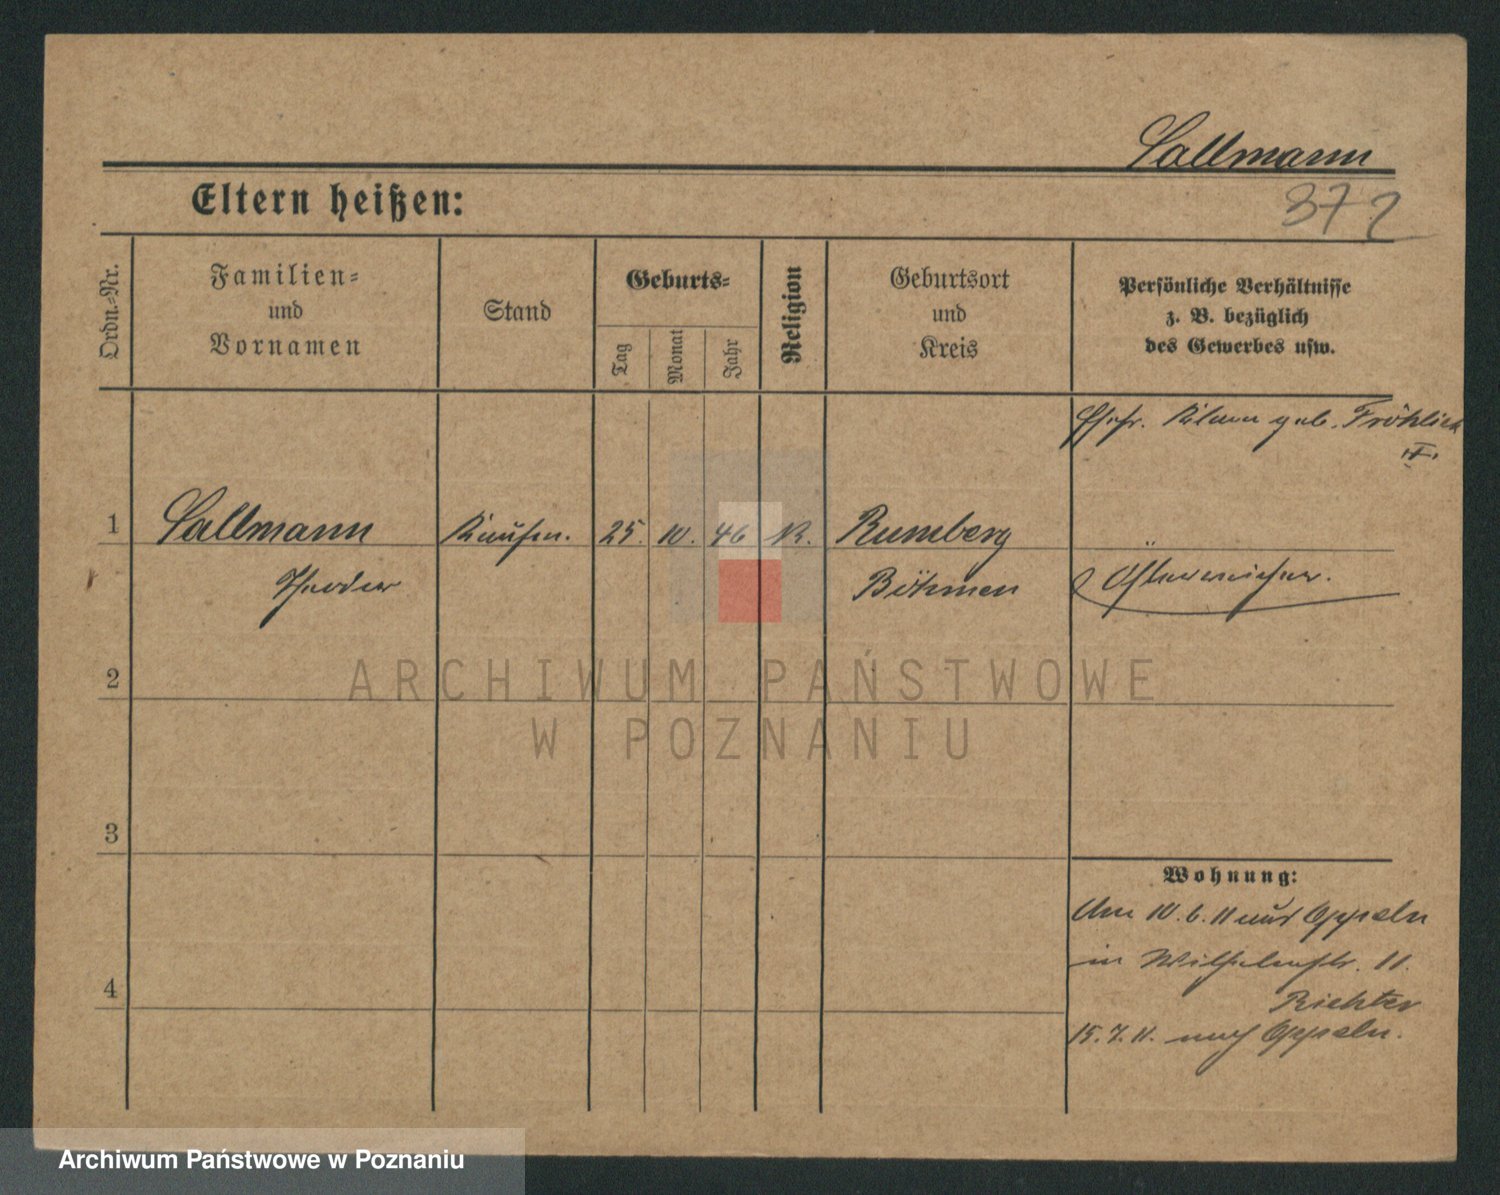 Sallmann
372
Eltern heißen:
Ordn.-Nr.
Familien-
und
Vornamen
Stand
Geburts-
Tag
Monat
Jahr
Religion
Geburtsort
und
Kreis
Persönliche Verhältnisse
z. B. bezüglich
des Gewerbes usw.
Ehefr. geb. Fröhlich
1 Sallmann 25. 10. 46 K. Rumberg
Theodor Böhmen Österreicher.
2
3
4
Wohnung:
Am 10.6.11 aus Oppeln
in Wilhelmstr. 11.
Richter
15.7.11. nach Oppeln.
ARCHIWUM PAŃSTWOWE
W POZNANIU
Archiwum Państwowe w Poznaniu